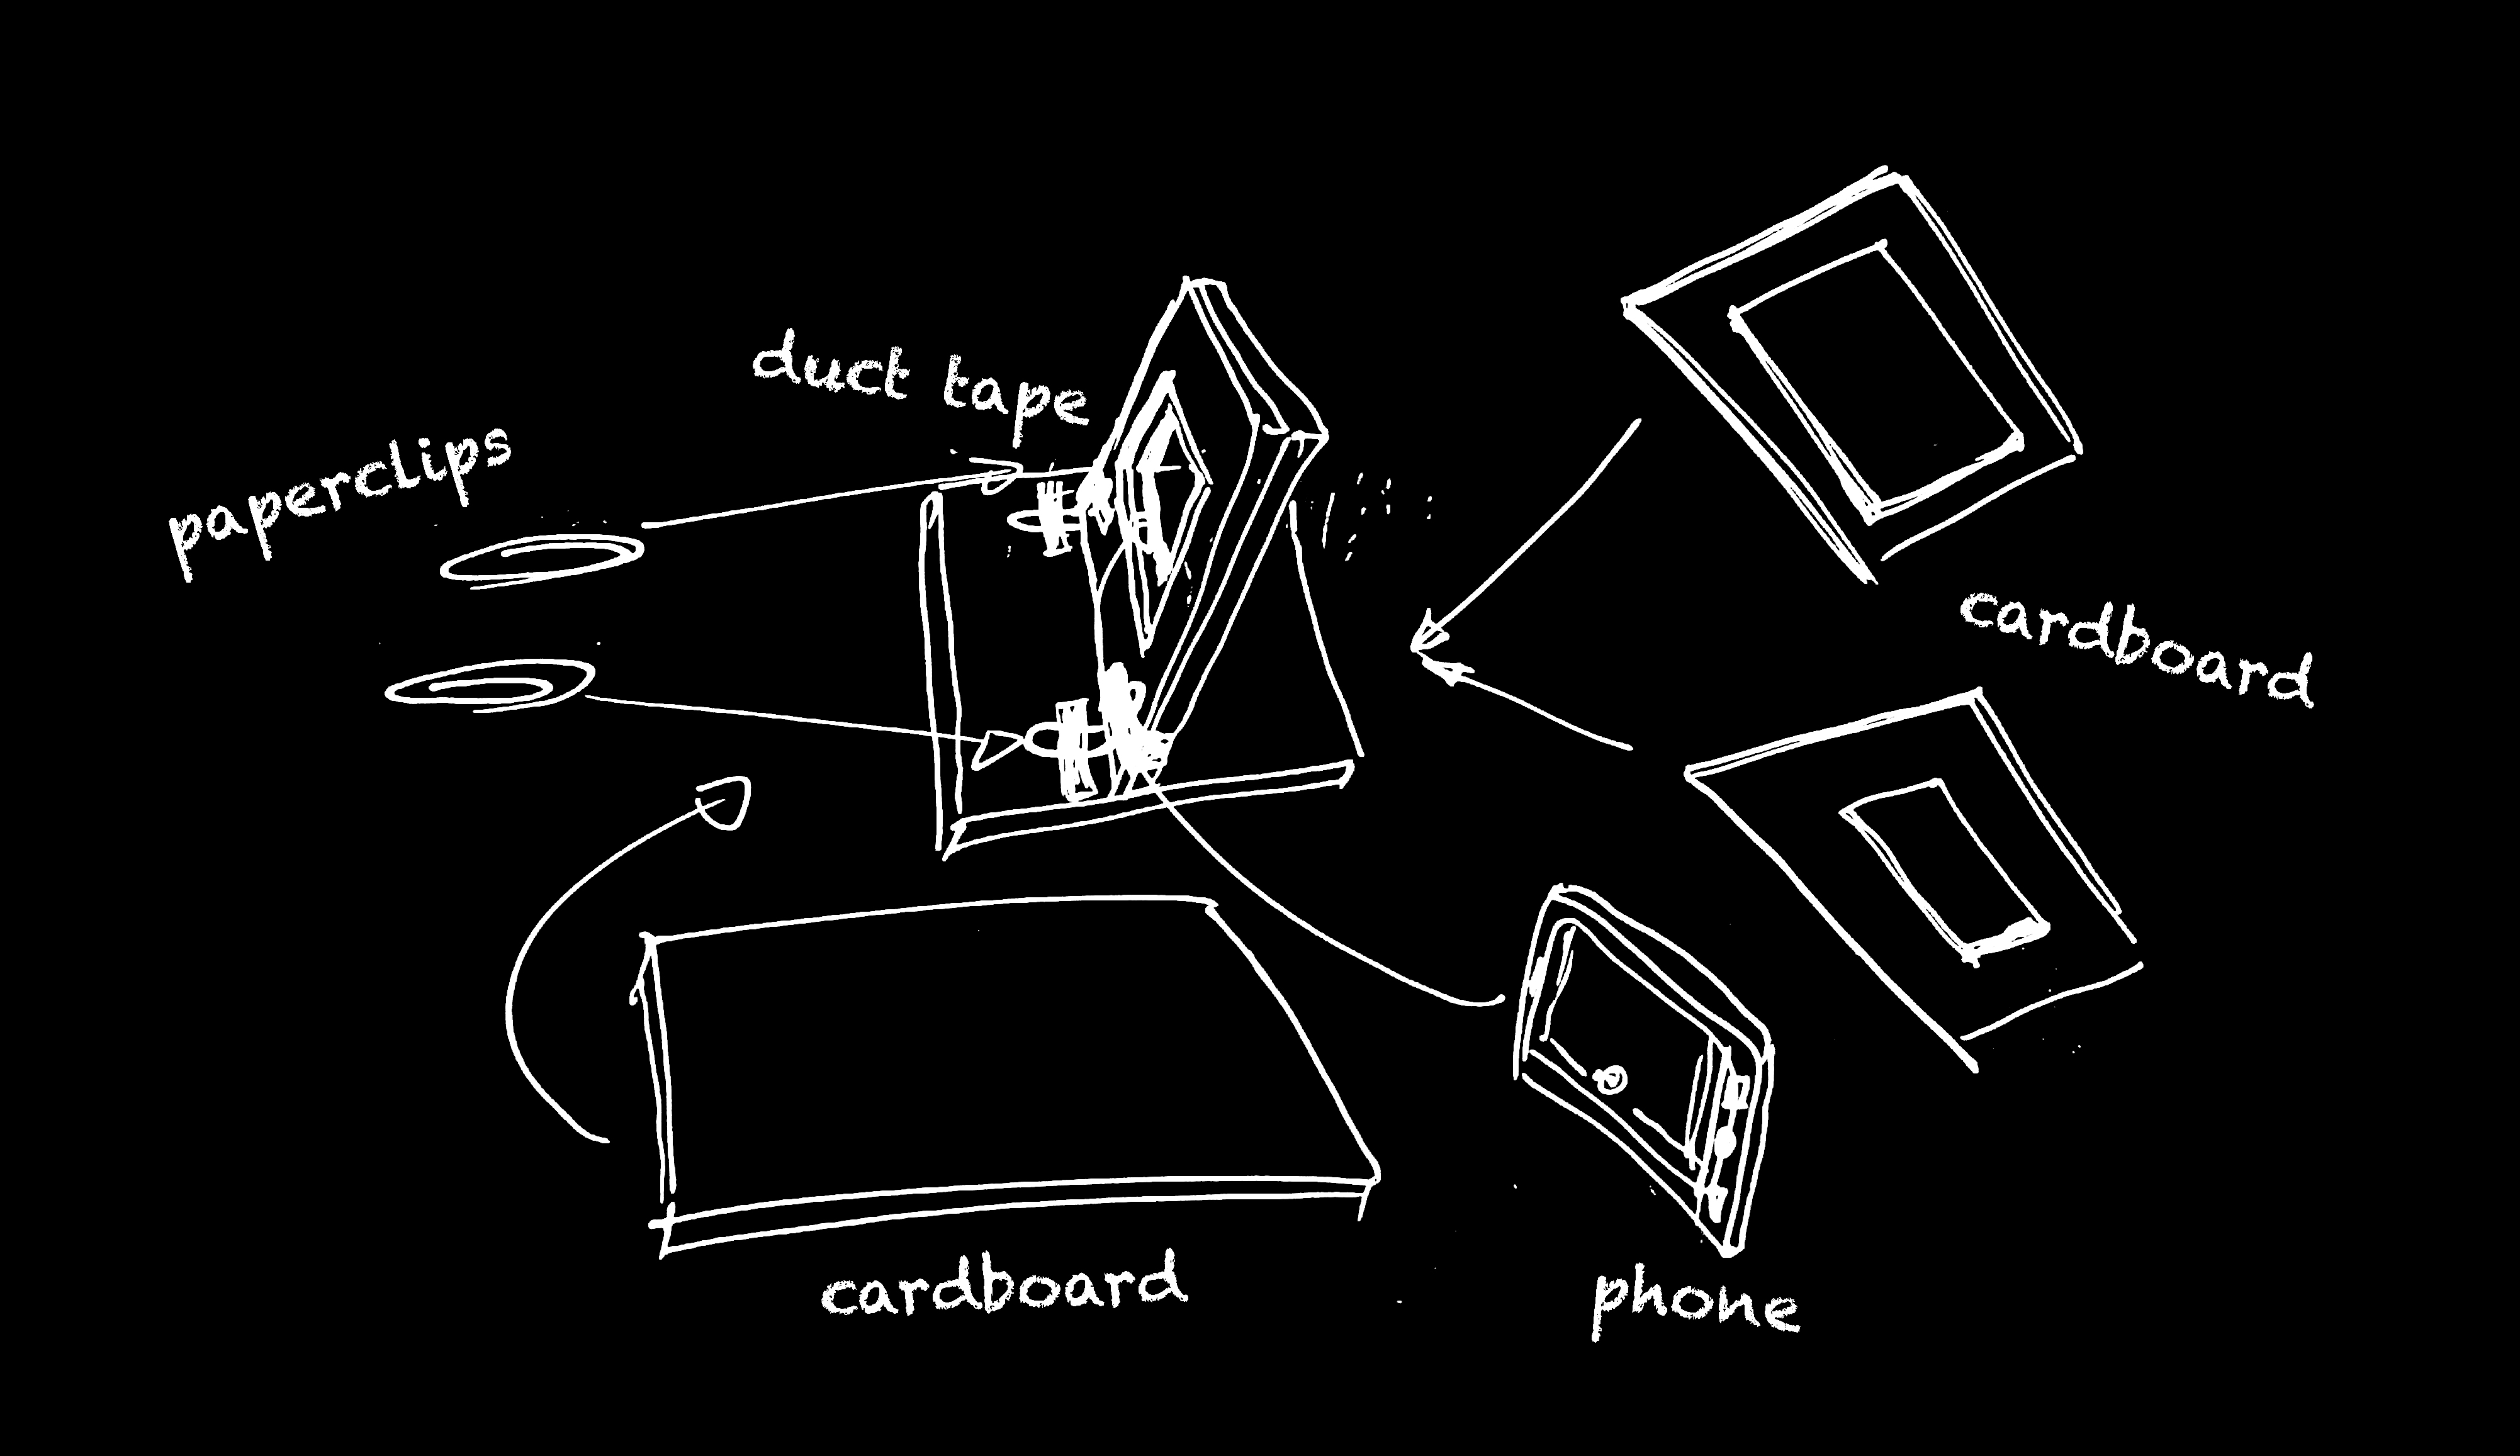 duct tape
paperclips
cardboard
cardboard
phone